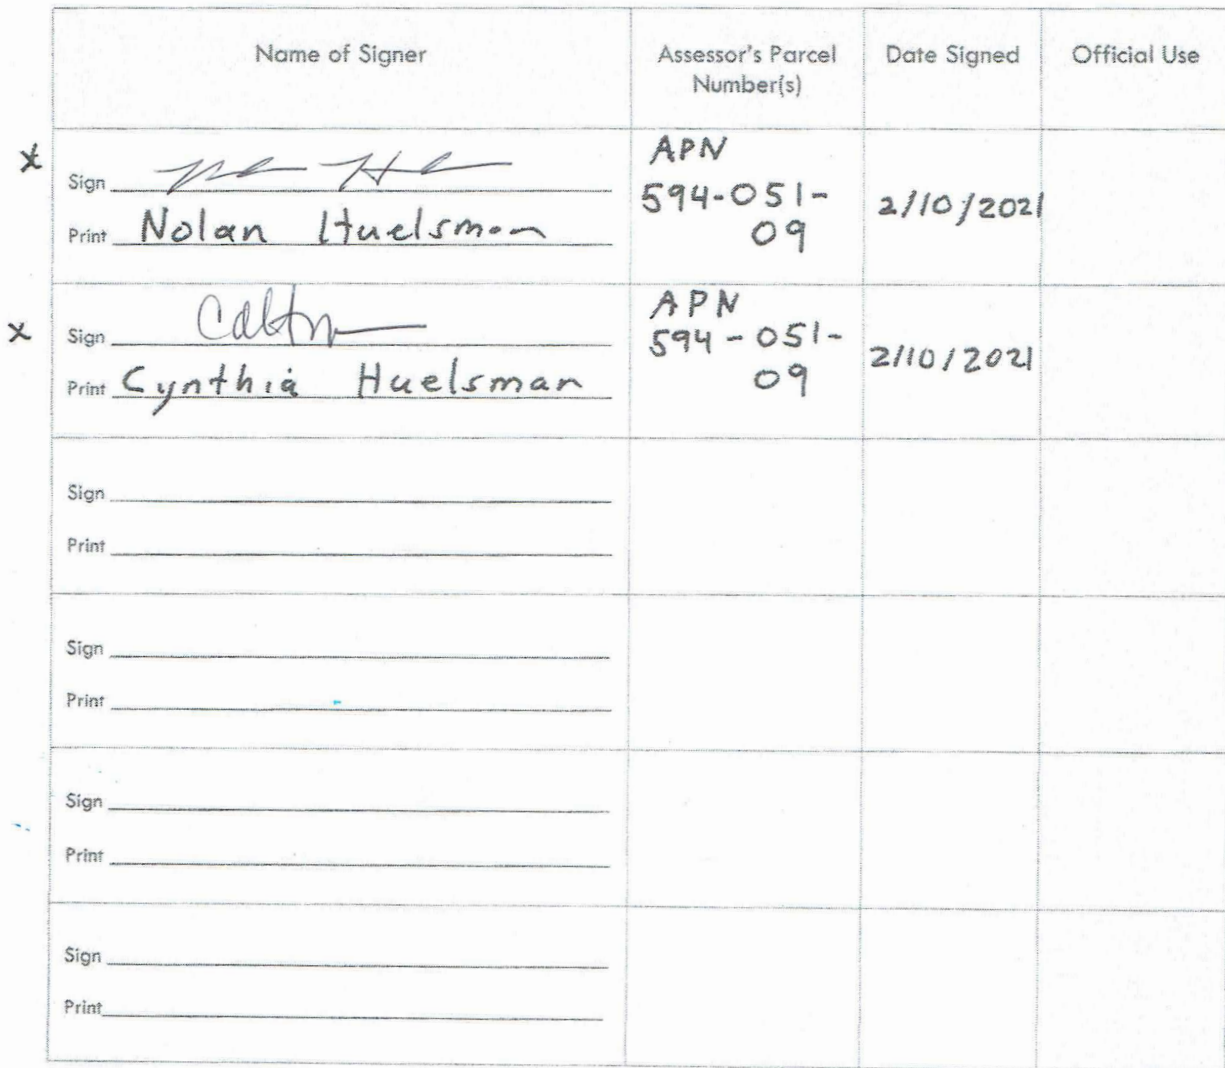 Name of Signer
Assessor's Parcel
Number(s)
Date Signed
Official Use
x
Sign
Print Nolan Huelsman
APN
594-051-
09
2/10/2021
x
Sign
Print Cynthia Huelsman
APN
594-051-
09
2/10/2021
Sign
Print
Sign
Print
Sign
Print
Sign
Print